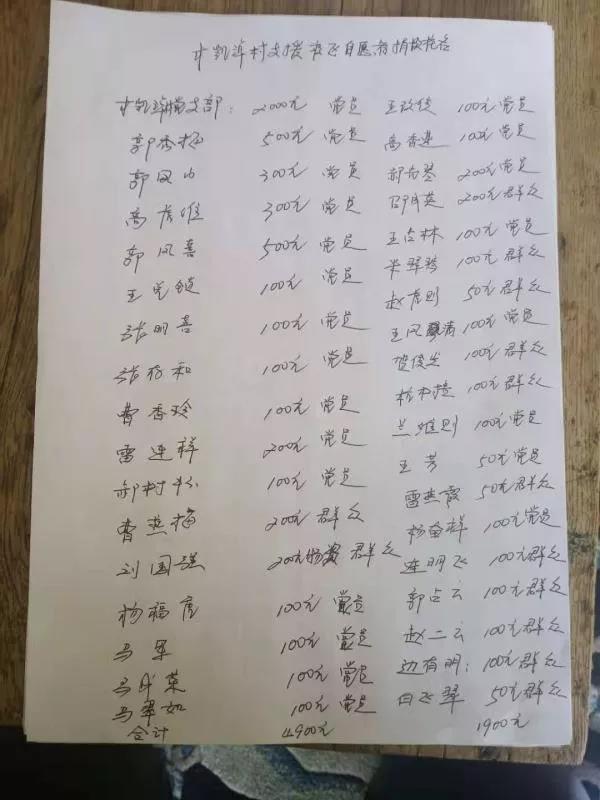 村支援 自愿者捐款
党支部: 2000元 党员
郭香梅 500元 党员
郭凤山 300元 党员
高虎维 300元 党员
郭凤喜 500元 党员
王 锁 100元 党员
张明喜 100元 党员
张存和 100元 党员
曹香玲 100元 党员
雷连祥 200元 党员
郝村 100元 党员
曹燕梅 200元 群众
刘国强 200元物资 群众
杨福虎 100元 党员
马军 100元 党员
马 荣 100元 党员
马翠如 100元 党员
合计 4900元
王改俊 100元 党员
高香莲 100元 党员
郝 琴 200元 党员
英 200元 群众
王占林 100元 党员
100元 群众
赵虎则 50元 群众
王凤 清 100元 党员
贺俊 100元 群众
100元 群众
兰维则 100元 党员
王芳 50元 党员
雷燕霞 50元 群众
杨奋祥 100元 党员
连明飞 100元 群众
郭占云 100元 群众
赵二云 100元 群众
边有明: 100元 群众
白飞翠 50元 群众
1900元